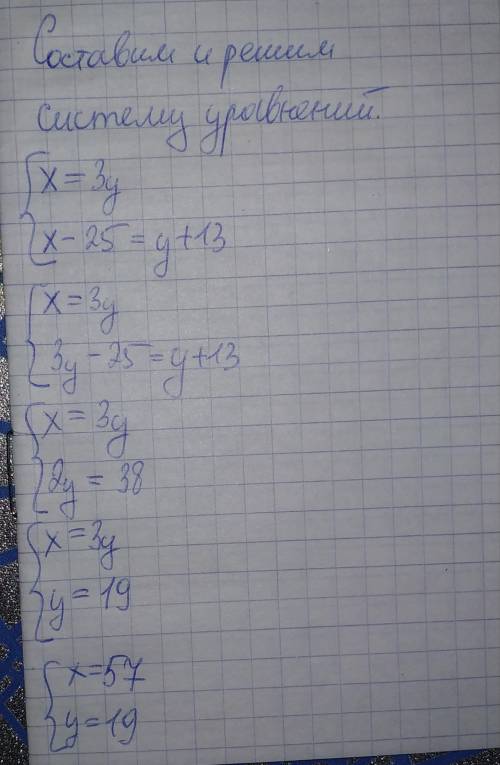 Составим и решим
систему уравнений.
x = 3y
x - 25 = y + 13
x = 3y
3y - 25 = y + 13
x = 3y
2y = 38
x = 3y
y = 19
x = 57
y = 19